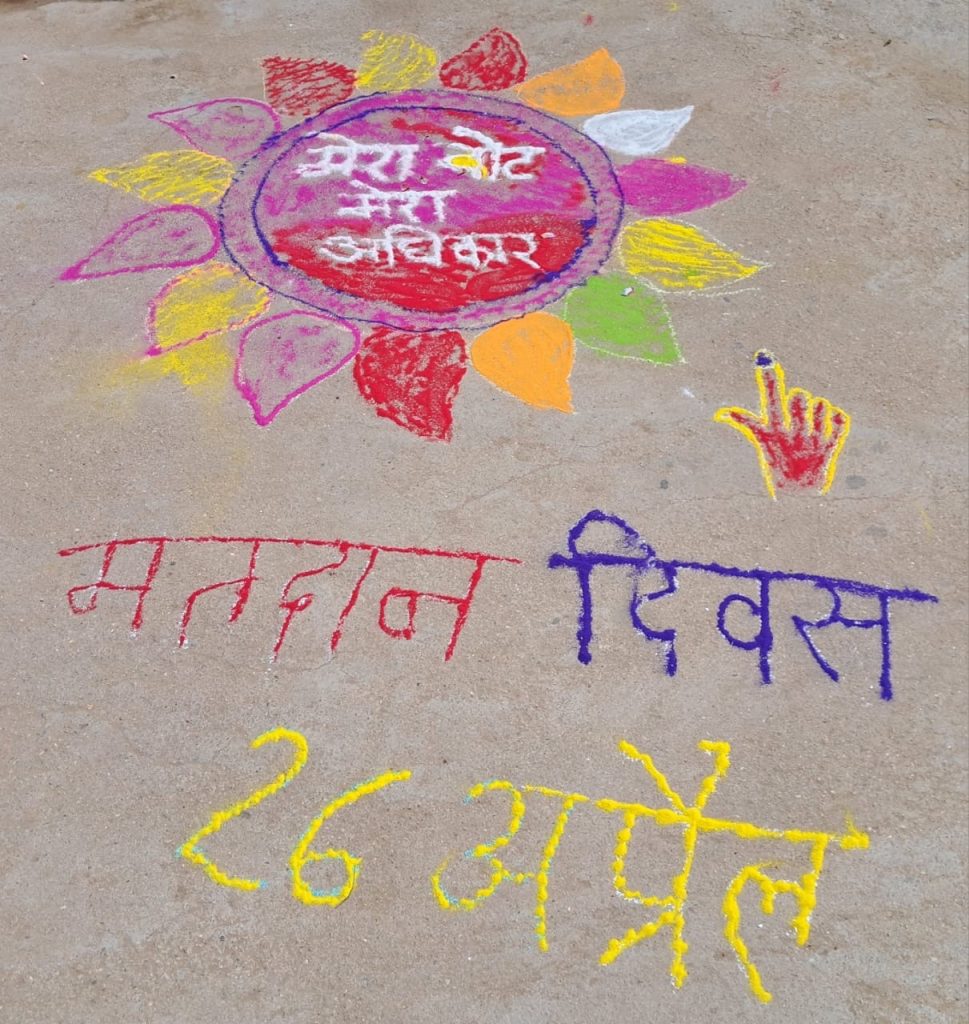 मेरा वोट
मेरा
अधिकार
मतदान दिवस
26 अप्रैल